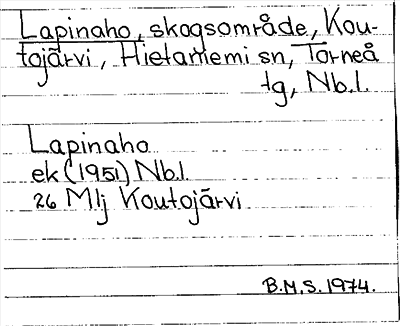 Lapinaho, skogsområde, Kou-
tojärvi, Hietaniemi sn, Torneå
tg, Nb.l.
Lapinaho
ek (1951) Nb.l.
26 Mlj Koutojärvi
B.M.S. 1974.